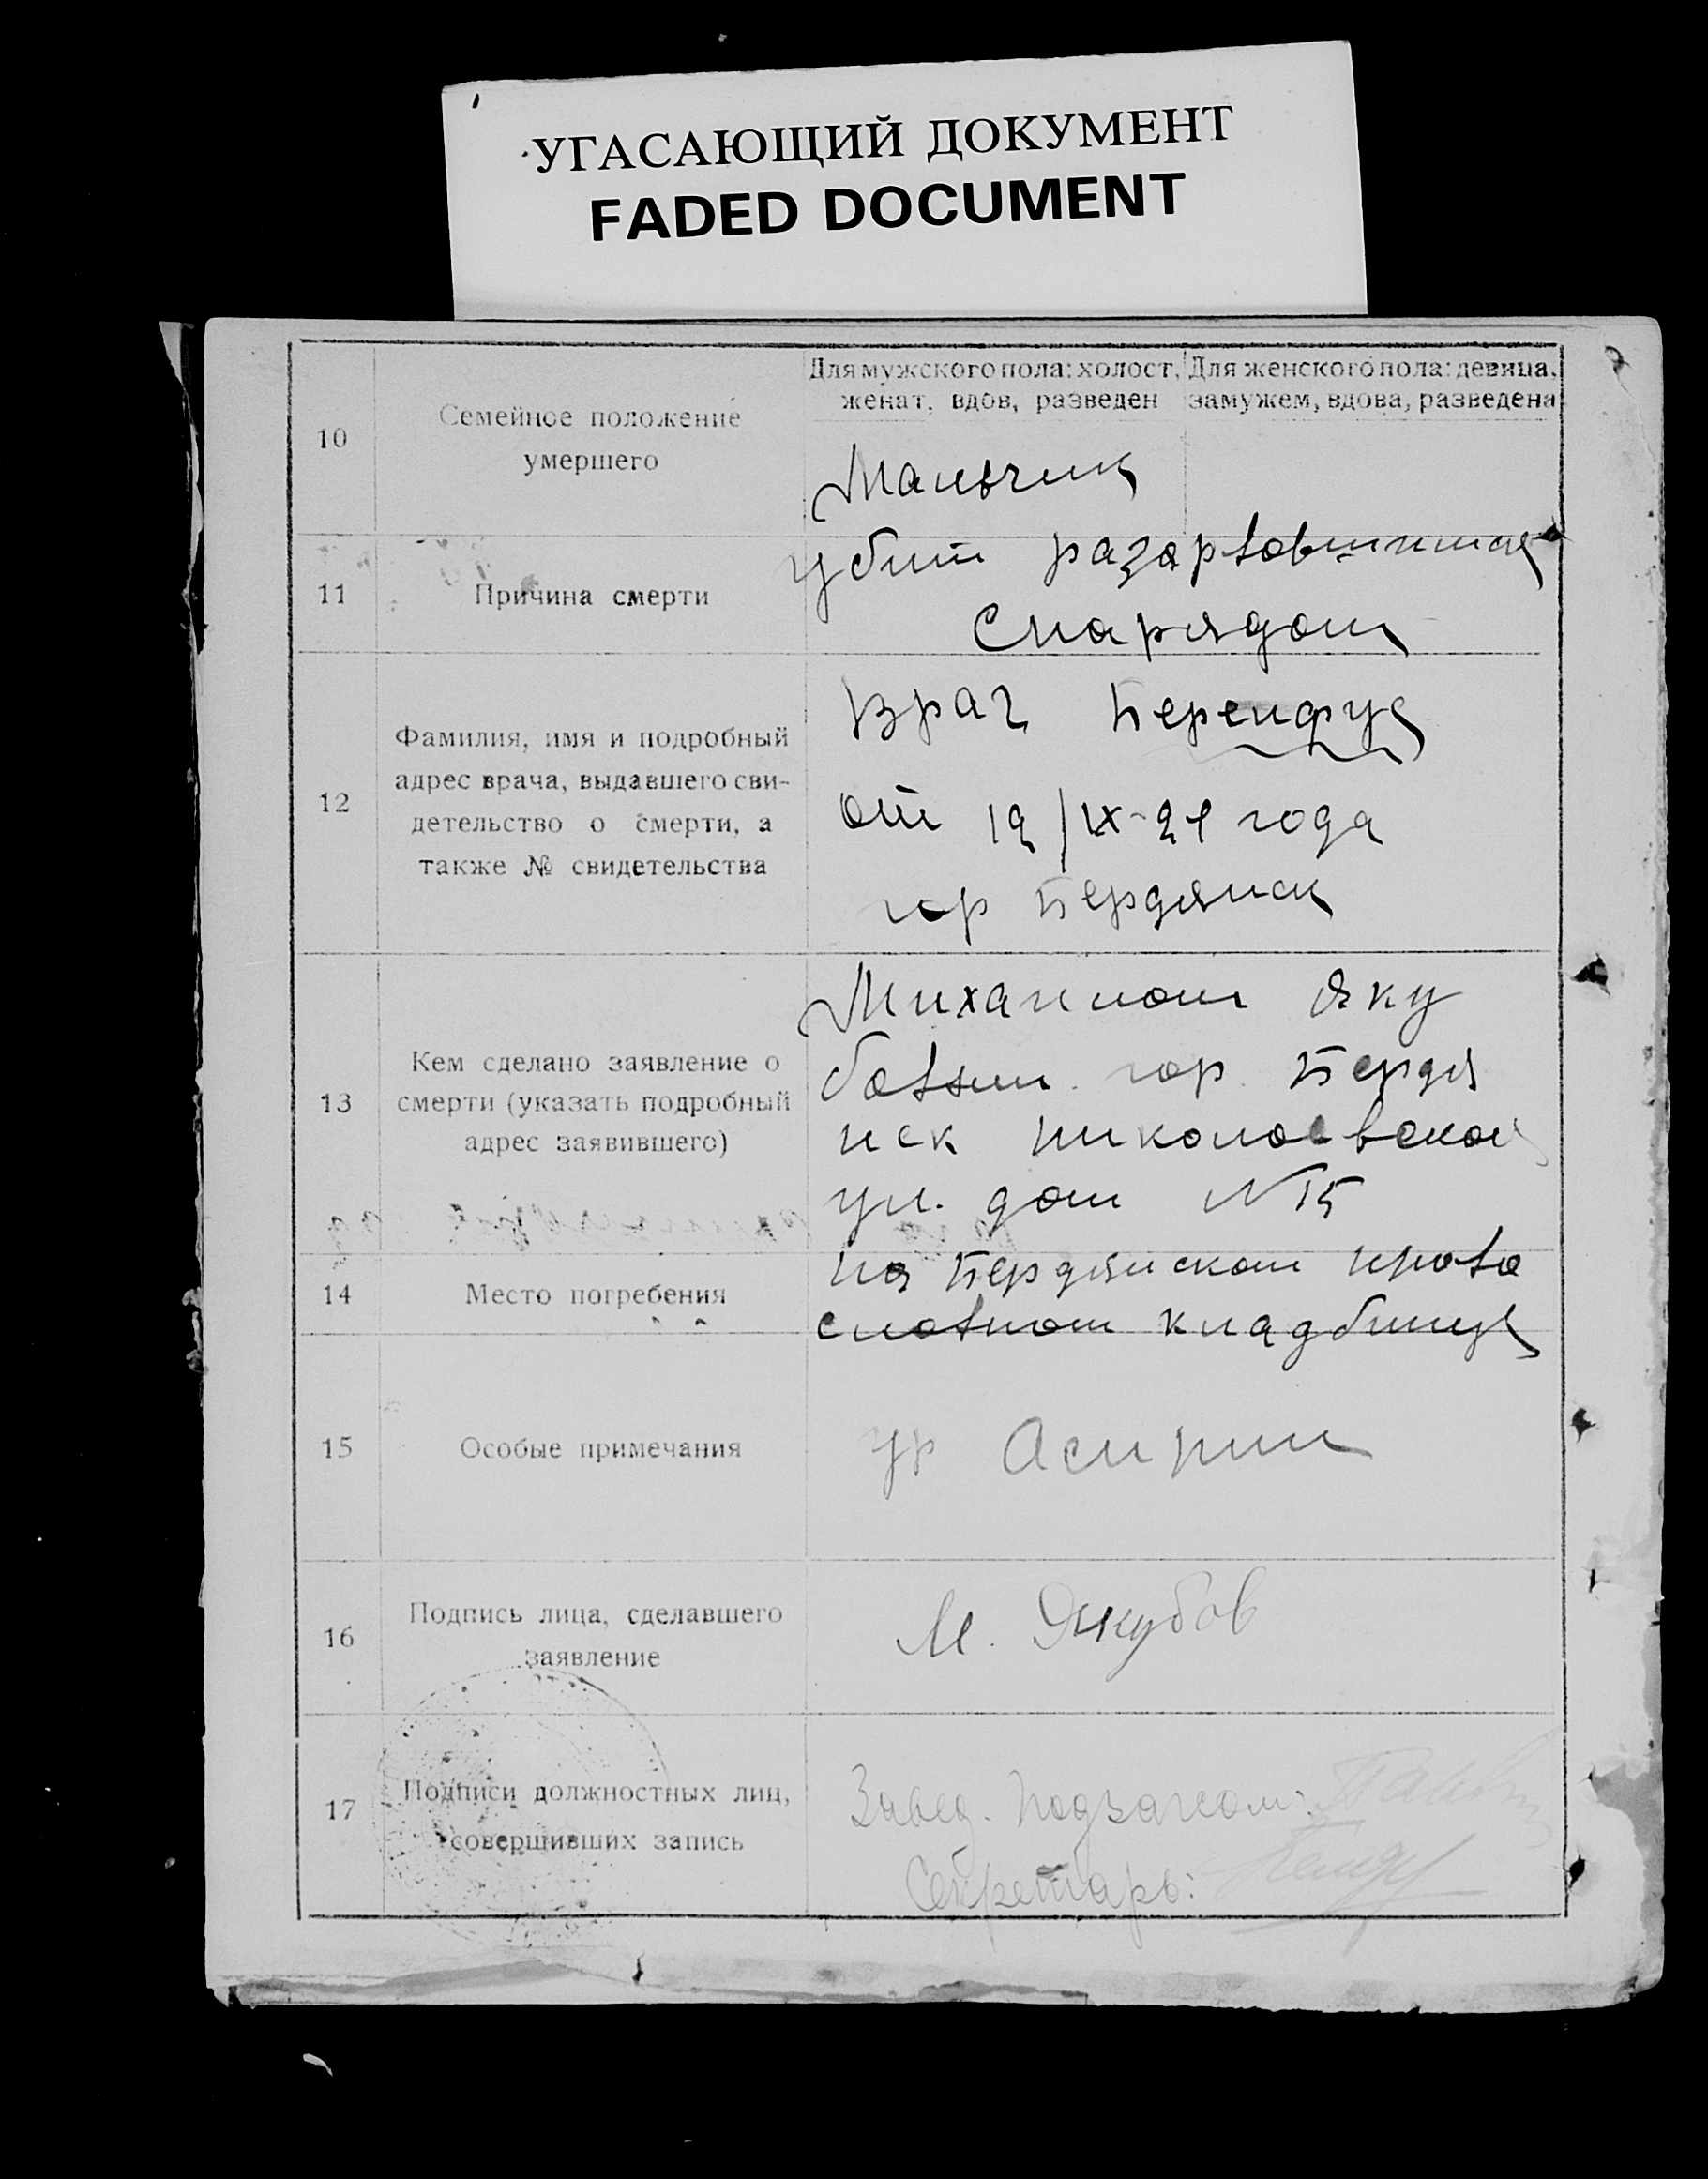 УГАСАЮЩИЙ ДОКУМЕНТ
FADED DOCUMENT
Для мужского пола: холост, женат, вдов, разведен
Для женского пола: девица, замужем, вдова, разведена
10
Семейное положение
умершего
Мальчик
11
Причина смерти
убит разарвавшимся
Снарядом
12
Фамилия, имя и подробный
адрес врача, выдавшего сви-
детельство о смерти, а
также № свидетельства
врач
от 12/IX-21 года
гор Бердянск
13
Кем сделано заявление о
смерти (указать подробный
адрес заявившего)
Михаилом Яку
бовым. гор. Бердя
нск николаевской
ул. дом N 15
14
Место погребения
на Бердянском права
славном кладбище
15
Особые примечания
гр Асирии
16
Подпись лица, сделавшего
заявление
М. Якубов
17
Подписи должностных лиц,
совершивших запись
Завед. Подзагсом:
Секретарь: